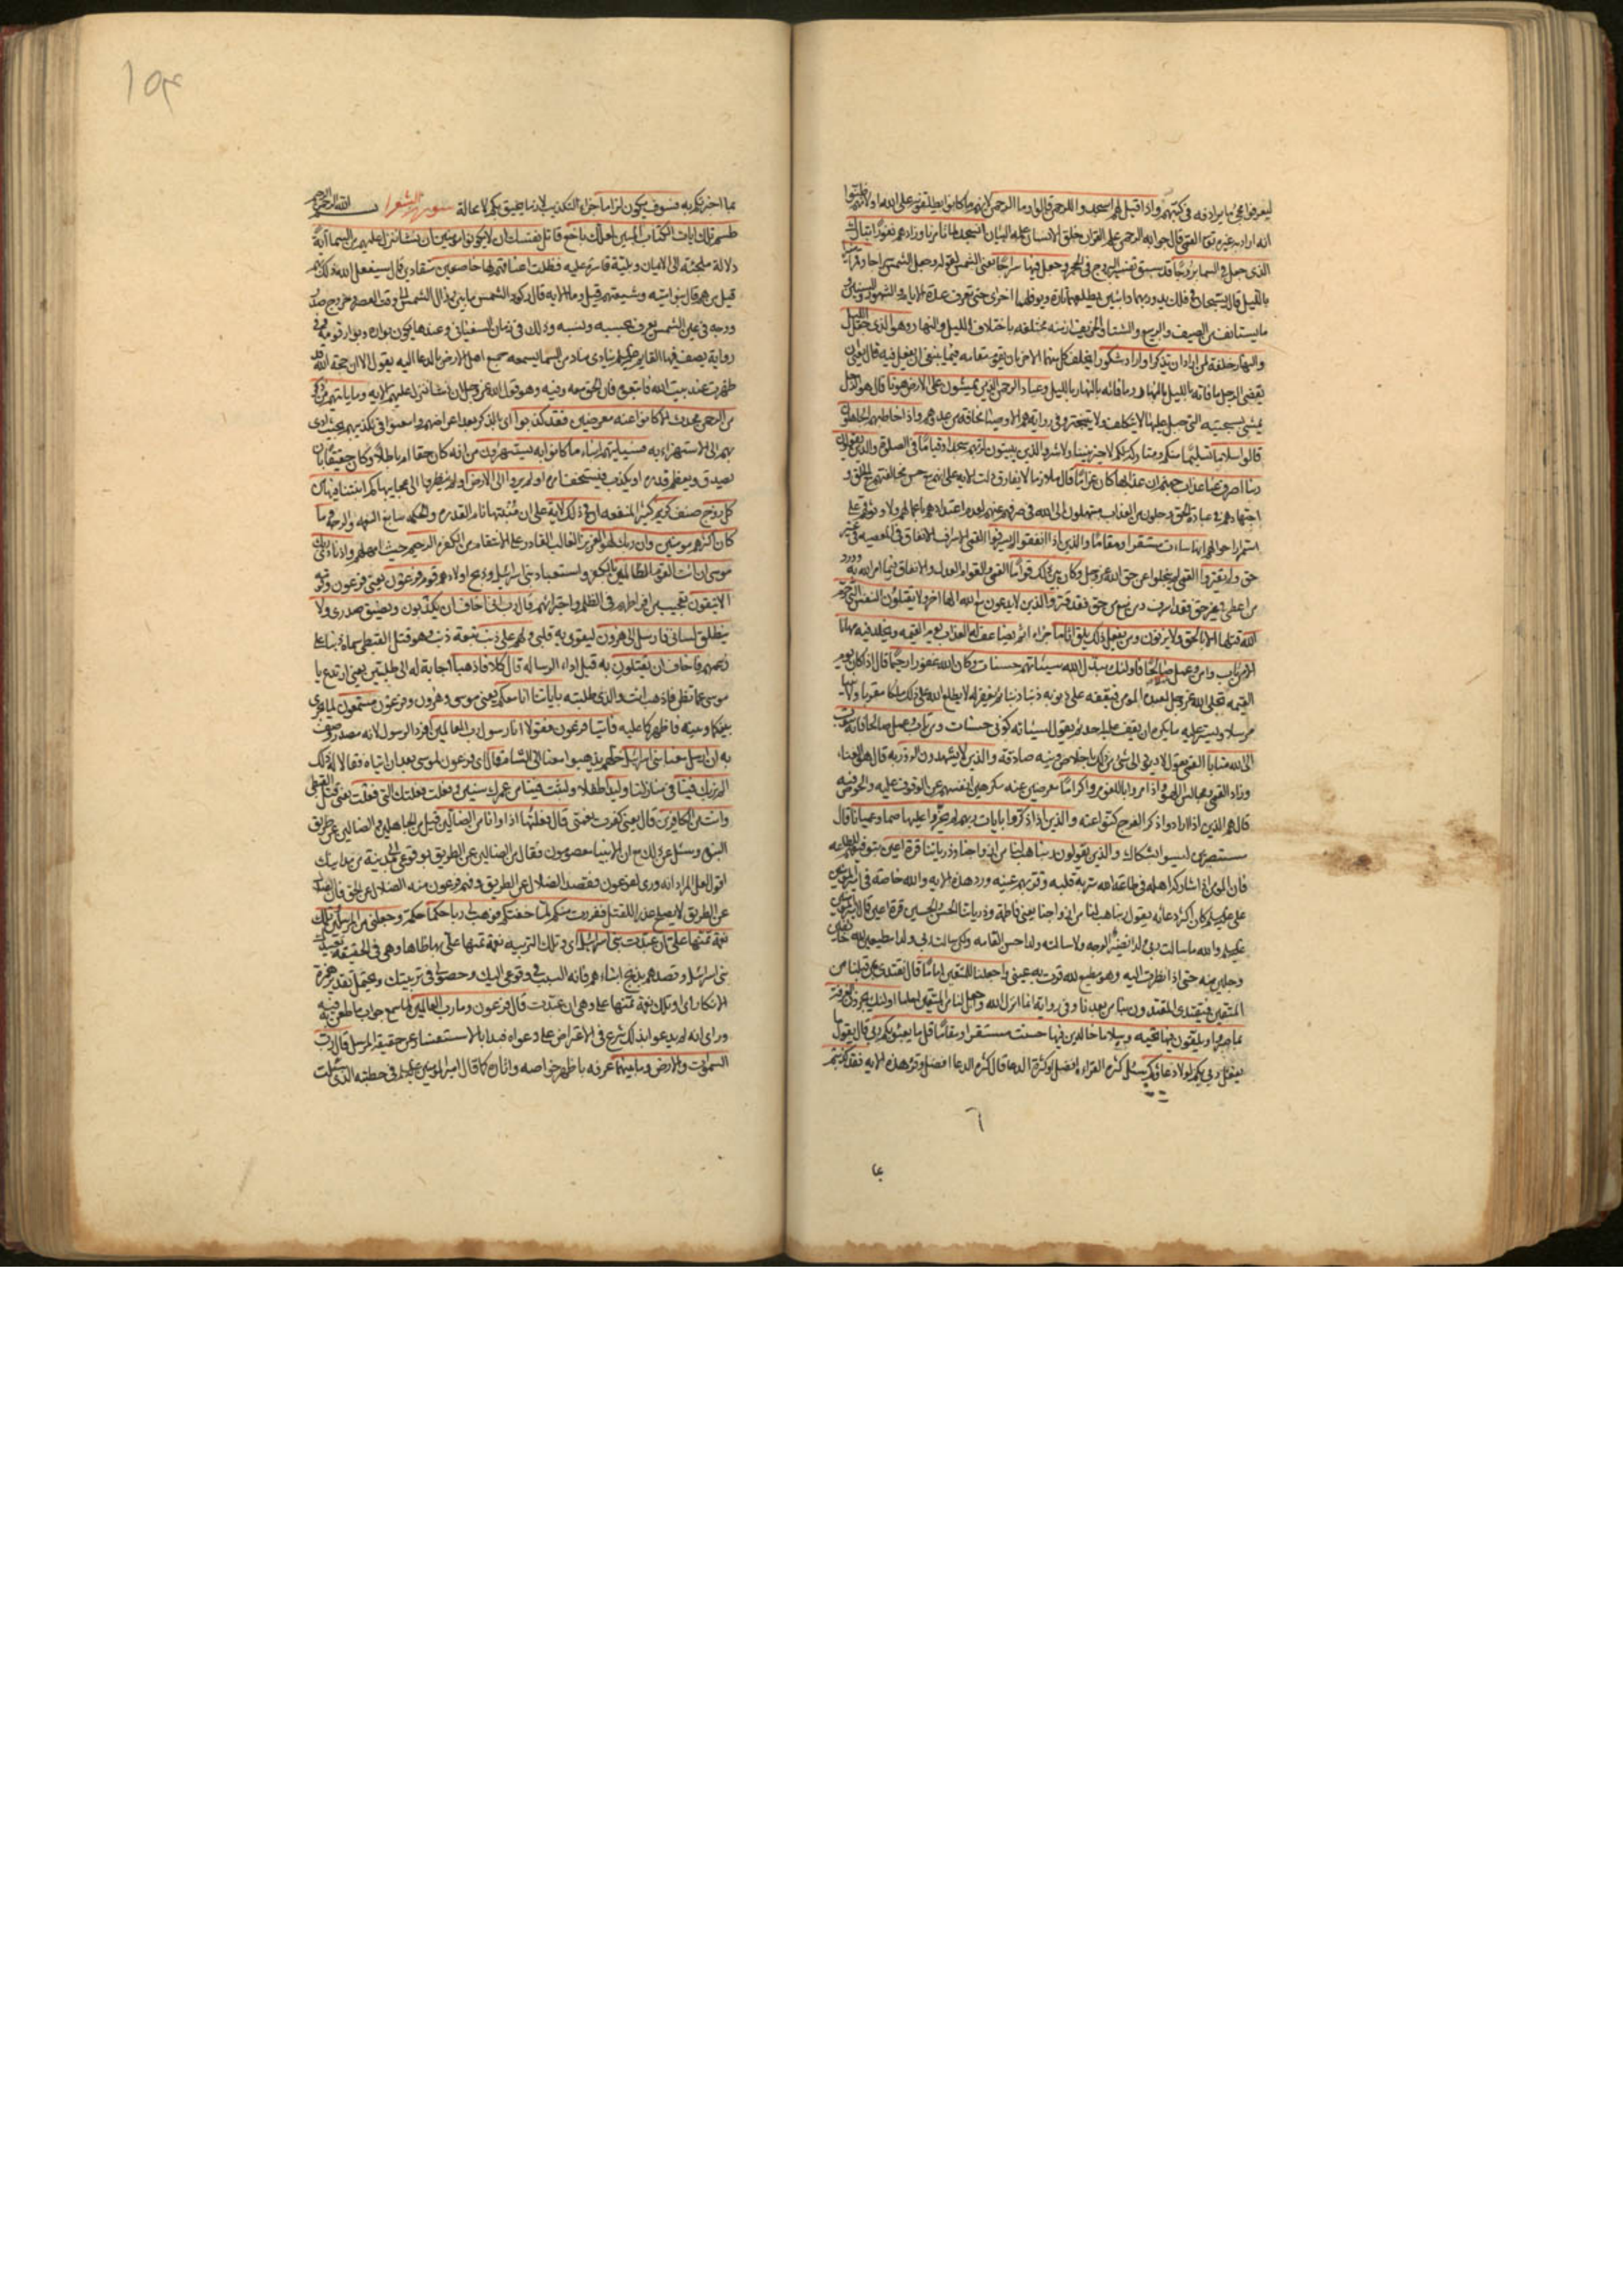 ليعرفوا مجئ ما يراد فه في كتبهم واذا قيل لهم اسجدوا للرحمن قالوا وما الرحمن لانهم ما كانوا يطلقونه على الله او لانهم ظنوا
انه اراد به غيره تعالى القمي قال جوابه الرحمن علم القران خلق الانسان علمه البيان انسجد لما تامرنا وزادهم نفورا تبارك
الذي جعل في السماء بروجا قد سبق تفسير البروج في الحجر وجعل فيها سراجا يعني الشمس لقوله وجعل الشمس سراجا وقمرا منيرا
بالليل قال يسبحان في فلك يدور بهما دائبين يطلعهما تارة ويوفلهما اخرى حتى تعرف عدة الايام والشهور والسنين و
ما يستانف من الصيف والربيع والشتا والخريف ازمنة مختلفة باختلاف الليل والنهار وهو الذي جعل الليل
والنهار خلفة لمن اراد ان يذكر او اراد شكورا يخلف كل منهما الاخر بان يقوم مقامه فيما ينبغي ان يفعل فيه قال يعني ان
يقضي الرجل ما فاته بالليل بالنهار وما فاته بالنهار بالليل وعباد الرحمن الذين يمشون على الارض هونا قال هو الرجل
يمشي بسجيته التي جبل عليها لا يتكلف ولا يتبختر وفي رواية هم الاوصياء مخافة من عدوهم واذا خاطبهم الجاهلون
قالوا سلاما تسليما منكم ومتاركة لكم لا خير بيننا ولا شر والذين يبيتون لربهم سجدا وقياما في الصلوة والذين يقولون
ربنا اصرف عنا عذاب جهنم ان عذابها كان غراما قال ملازما لا يفارق دلت الاية على انهم مع حسن مخالقتهم مع الخلق و
اجتهادهم في عبادة الحق وجلون من العذاب مبتهلون الى الله في صرفه عنهم لعدم اعتدادهم باعمالهم ولا وثوقهم على
استمرار احوالهم انها ساءت مستقرا ومقاما والذين اذا انفقوا لم يسرفوا القمي الاسراف الانفاق في المعصية في غير
حق ولم يقتروا القمي لم يبخلوا عن حق الله عز وجل وكان بين ذلك قواما القمي والقوام العدل والانفاق فيما امر الله به ورد
من اعطى في غير حق فقد اسرف ومن منع من حق فقد قتر والذين لا يدعون مع الله الها اخر ولا يقتلون النفس التي حرم
الله قتلها الا بالحق ولا يزنون ومن يفعل ذلك يلق اثاما جزاء اثم يضاعف له العذاب يوم القيمة ويخلد فيه مهانا
الا من تاب وامن وعمل صالحا فاولئك يبدل الله سيئاتهم حسنات وكان الله غفورا رحيما قال اذا كان يوم
القيمة تجلى الله عز وجل لعبده المومن فيقفه على ذنوبه ذنبا ذنبا ثم يغفر له لا يطلع الله على ذلك ملكا مقربا ولا نبيا
مرسلا ويستر عليه ما يكره ان يقف عليه احد ثم يقول لسيئاته كوني حسنات ومن تاب وعمل صالحا فانه يتوب
الى الله متابا القمي يقول لا يعود الى شئ من ذلك باخلاص ونية صادقة والذين لا يشهدون الزور به قال هو الغناء
وزاد القمي ومجالس اللهو واذا مروا باللغو مروا كراما معرضين عنه مكرمين انفسهم عن الوقوف عليه والخوض فيه
قال هم الذين اذا ارادوا ذكر الفرج كنوا عنه والذين اذا ذكروا بايات ربهم لم يخروا عليها صما وعميانا قال
مستبصرين ليسوا بشكاك والذين يقولون ربنا هب لنا من ازواجنا وذرياتنا قرة اعين بتوفيقهم للطاعة
فان المومن اذا شاركه اهله في طاعة الله سر به قلبه وقر بهم عينه ورد هذه الاية والله خاصة في امير المؤمنين
علي عليه السلم كان اكثر دعائه يقول ربنا هب لنا من ازواجنا يعني فاطمة وذرياتنا الحسن والحسين قرة اعين قال امير المؤمنين
عليه السلم والله ما سالت ربي ولدا نضير الوجه ولا سالته ولدا حسن القامة ولكن سالت ربي ولدا مطيعين لله خائفين
وجلين منه حتى اذا نظرت اليه وهو مطيع لله قرت به عيني واجعلنا للمتقين اماما قال نقتدي بمن قبلنا من
المتقين فيقتدي المقتدون بنا من بعدنا وفي رواية انما انزل الله واجعل لنا من المتقين اماما اولئك يجزون الغرفة
بما صبروا ويلقون فيها تحية وسلاما خالدين فيها حسنت مستقرا ومقاما قل ما يعبؤ بكم ربي قال يقول ما
يفعل ربي بكم لولا دعاؤكم سئل كثرة القراءة افضل او كثرة الدعا قال كثرة الدعا افضل وقرأ هذه الاية فقد كذبتم
بما اخبرتكم به فسوف يكون لزاما جزاء التكذيب لازما يحيق بكم لا محالة سورة الشعرا بسم الله الرحمن الرحيم
طسم تلك ايات الكتاب المبين لعلك باخع قاتل نفسك ان لا يكونوا مومنين ان نشا ننزل عليهم من السماء اية
دلالة ملجئة الى الايمان وبلية قاسرة عليه فظلت اعناقهم لها خاضعين منقادين قال سيفعل الله ذلك بهم
قيل من هم قال بنو امية وشيعتهم قيل وما الاية قال ركود الشمس ما بين زوال الشمس الى وقت العصر وخروج صدر
ووجه في عين الشمس يعرف بحسبه ونسبه وذلك في زمان السفياني وعندها يكون بواره وبوار قومه وفي
رواية يصف فيها القايم عليه السلم ينادي مناد من السماء يسمعه جميع اهل الارض بالدعا اليه يقول الا ان حجة الله قد
ظهرت عند بيت الله فاتبعوه فان الحق معه وفيه وهو قول الله عز وجل ان نشا ننزل عليهم الاية وما ياتيهم من ذكر
من الرحمن محدث الا كانوا عنه معرضين فقد كذبوا اي بالذكر بعد اعراضهم وامعنوا في تكذيبهم بحيث ادى
بهم الى الاستهزاء به فسياتيهم انباء ما كانوا به يستهزؤن من انه كان حقا ام باطلا وكان حقيقا بان
يصدق ويعظم قدره او يكذب فيستخف امره اولم يروا الى الارض اولم ينظروا الى عجايبها كم انبتنا فيها من
كل زوج صنف كريم كثير المنفعة ان في ذلك لاية على ان منبتها تام القدرة والحكمة سابغ النعمة والرحمة وما
كان اكثرهم مومنين وان ربك لهو العزيز الغالب القادر على الانتقام من الكفرة الرحيم حيث امهلهم واذ نادى ربك
موسى ان ائت القوم الظالمين بالكفر واستعباد بني اسرائيل وذبح اولادهم قوم فرعون يعني فرعون وقومه
الا يتقون تعجيب من افراطهم في الظلم واجترائهم قال رب اني اخاف ان يكذبون ويضيق صدري ولا
ينطلق لساني فارسل الى هرون ليقوى به قلبي ولهم علي ذنب تبعة ذنب وهو قتل القبطي سماه ذنبا على
زعمهم فاخاف ان يقتلون به قبل اداء الرسالة قال كلا فاذهبا اجابة له الى طلبتين يعني ارتدع يا
موسى عما تظن فاذهب انت والذي طلبته باياتنا انا معكم يعني موسى وهرون وفرعون مستمعون لما يجري
بينكما وبينه فاظهركما عليه فاتيا فرعون فقولا انا رسول رب العالمين افرد الرسول لانه مصدر وصف
به ان ارسل معنا بني اسرائيل خلهم يذهبوا معنا الى الشام قال اي فرعون لموسى بعد ان اتياه فقالا له ذلك
الم نربك فينا في منازلنا وليدا طفلا ولبثت فينا من عمرك سنين وفعلت فعلتك التي فعلت يعني قتل القبطي
وانت من الكافرين قال يعني كفرت نعمتي قال فعلتها اذا وانا من الضالين قيل من الجاهلين والضالين عن طريق
النبوة وسئل عن ذلك مع ان الانبيا معصومون فقال من الضالين عن الطريق بوقوعي الى مدينة من مداينك
اقول لعل المراد انه ورى لفرعون فقصد الضلال عن الطريق وفهم فرعون منه الضلال عن الحق فان الضلال
عن الطريق لا يصلح عذرا للقتل ففررت منكم لما خفتكم فوهب لي ربي حكما حكمة وجعلني من المرسلين وتلك
نعمة تمنها علي ان عبدت بني اسرائيل اي وتلك التربية نعمة تمنها علي بها ظاهرا وهي في الحقيقة تعبيدك
بني اسرائيل وقصدهم بذبح ابناءهم فانه السبب في وقوعي اليك وحصولي في تربيتك ويحتمل تقدير همزة
الانكار اي او تلك نعمة تمنها علي وهي ان عبدت قال فرعون وما رب العالمين لما سمع جواب ما طعن به فيه
وراى انه لم يرعو بذلك شرع في الاعتراض على دعواه فبدا بالاستفسار عن حقيقة المرسل قال رب
السموات والارض وما بينهما عرفه باظهر خواصه واثاره كما قال امير المومنين عليه السلم في خطبته الذي سئلت